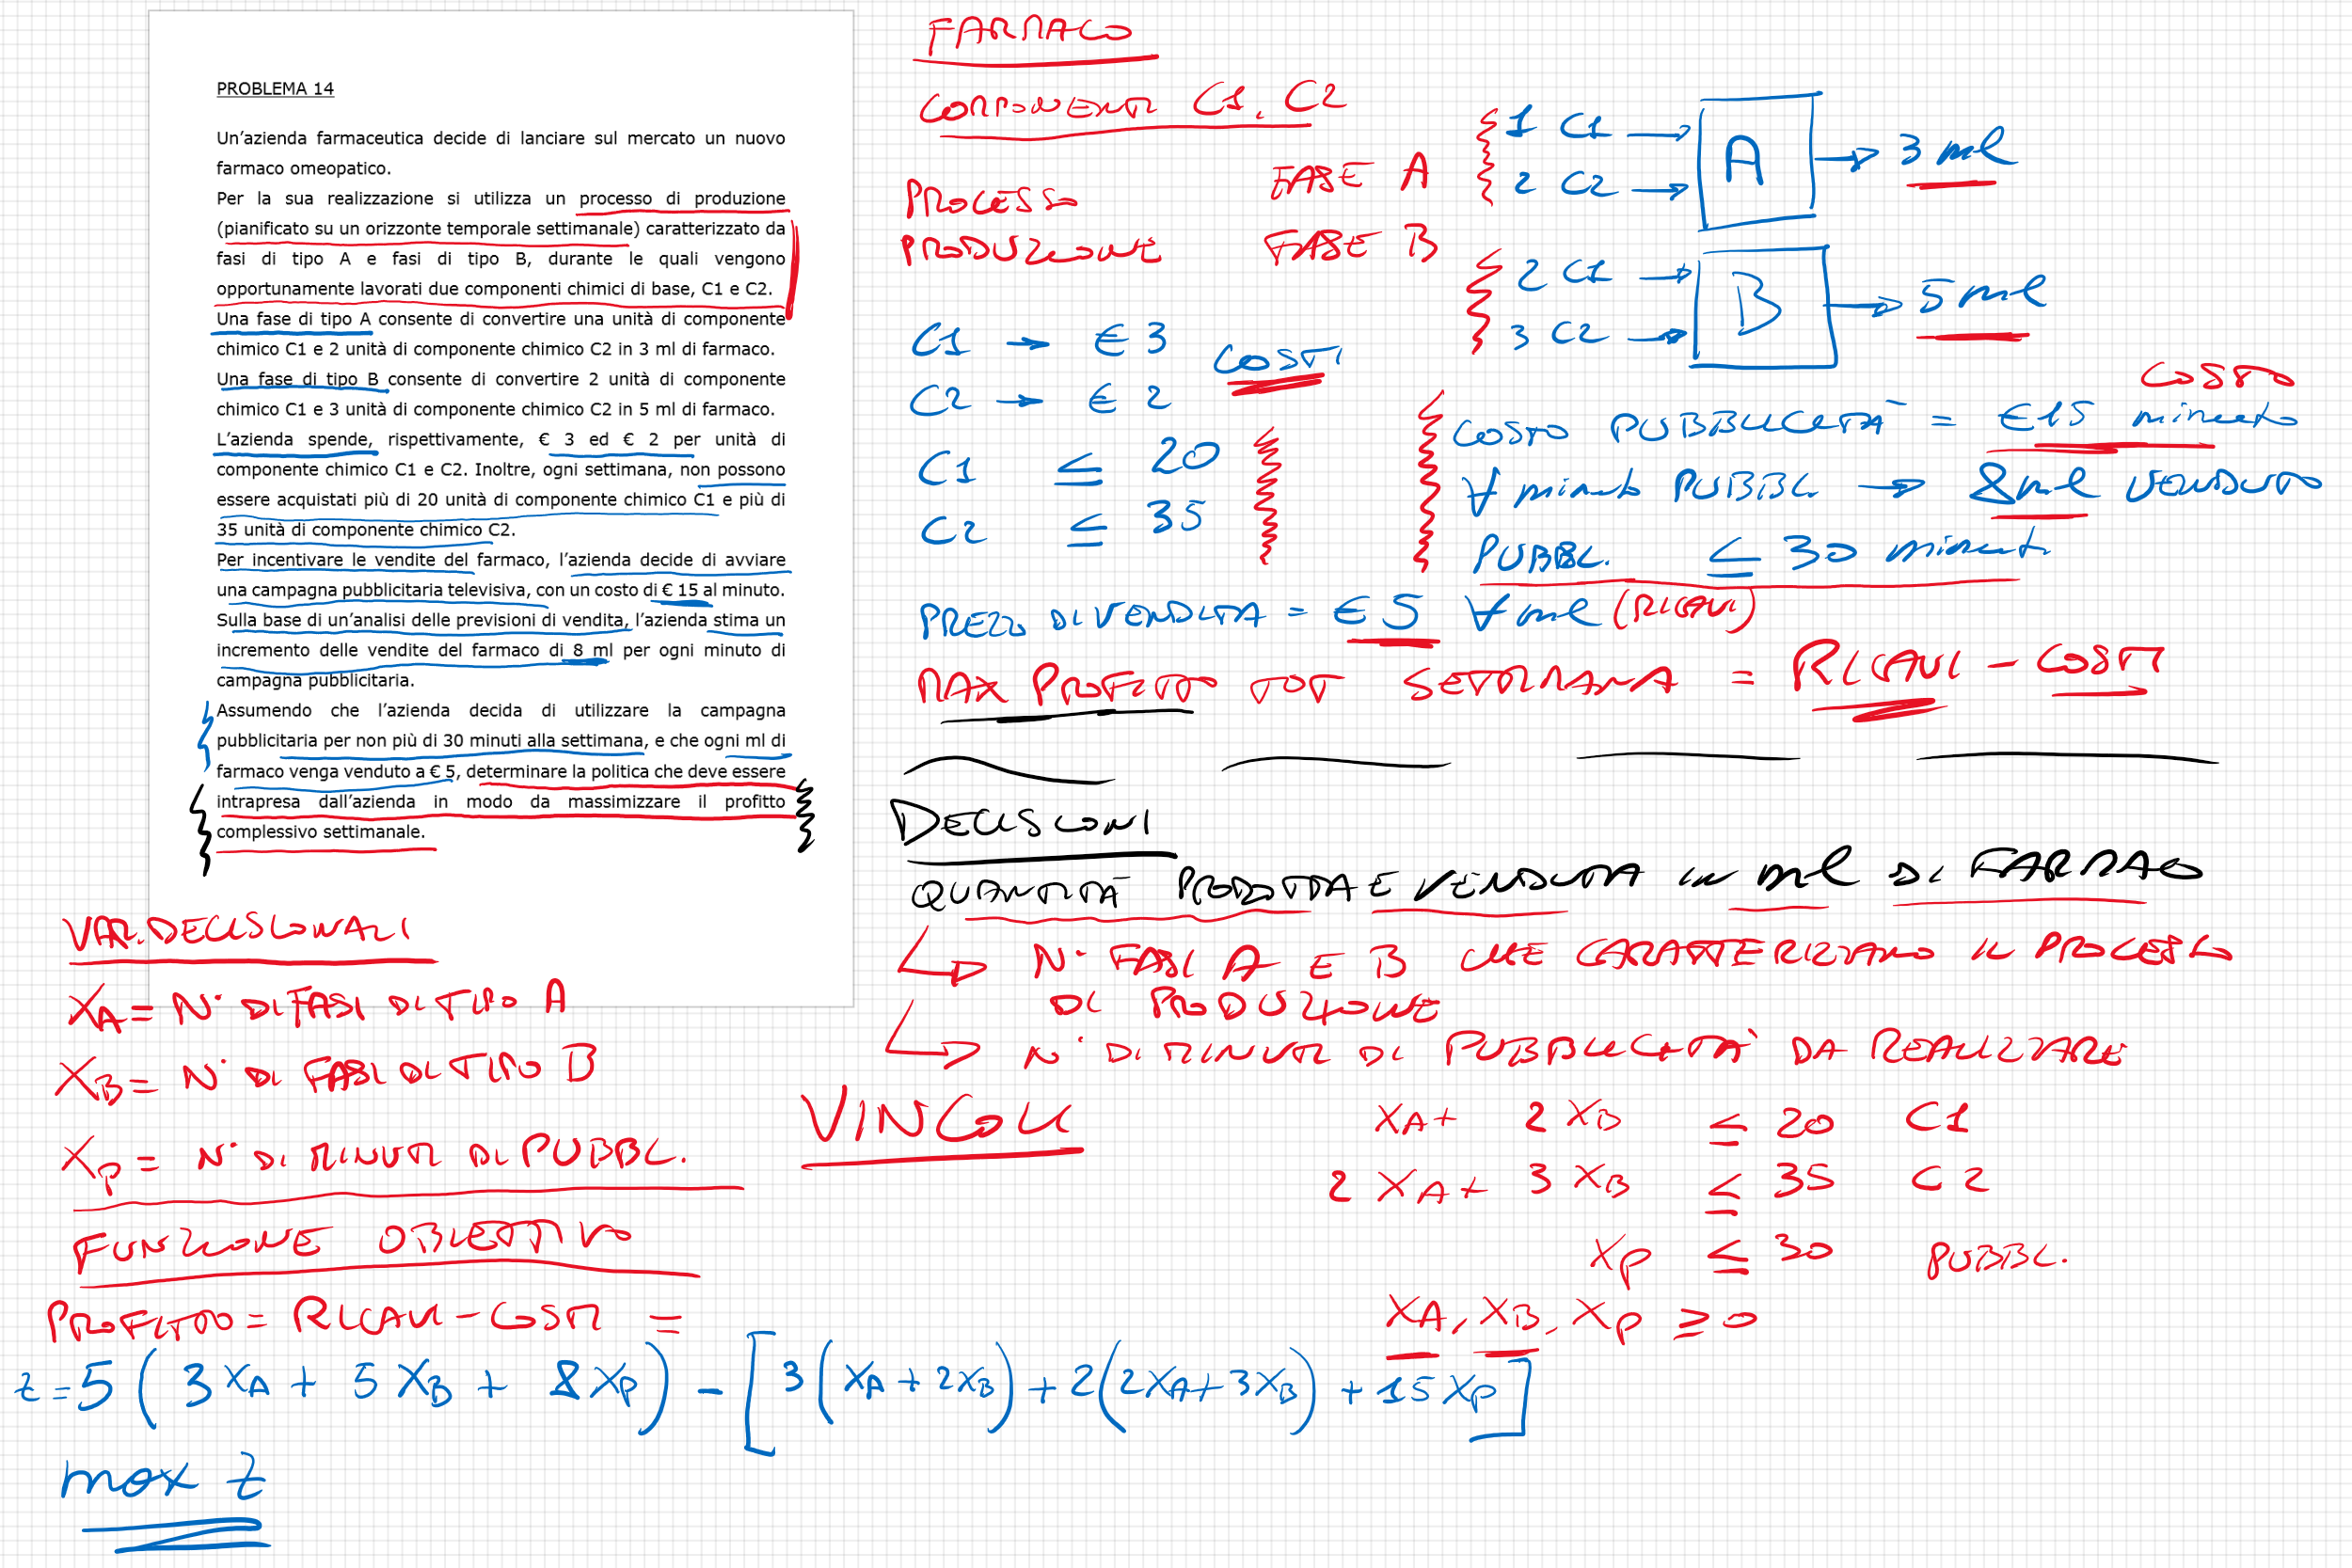 PROBLEMA 14
Un'azienda farmaceutica decide di lanciare sul mercato un nuovo
farmaco omeopatico.
Per la sua realizzazione si utilizza un processo di produzione
(pianificato su un orizzonte temporale settimanale) caratterizzato da
fasi di tipo A e fasi di tipo B, durante le quali vengono
opportunamente lavorati due componenti chimici di base, C1 e C2.
Una fase di tipo A consente di convertire una unità di componente
chimico C1 e 2 unità di componente chimico C2 in 3 ml di farmaco.
Una fase di tipo B consente di convertire 2 unità di componente
chimico C1 e 3 unità di componente chimico C2 in 5 ml di farmaco.
L'azienda spende, rispettivamente, € 3 ed € 2 per unità di
componente chimico C1 e C2. Inoltre, ogni settimana, non possono
essere acquistati più di 20 unità di componente chimico C1 e più di
35 unità di componente chimico C2.
Per incentivare le vendite del farmaco, l'azienda decide di avviare
una campagna pubblicitaria televisiva, con un costo di € 15 al minuto.
Sulla base di un'analisi delle previsioni di vendita, l'azienda stima un
incremento delle vendite del farmaco di 8 ml per ogni minuto di
campagna pubblicitaria.
Assumendo che l'azienda decida di utilizzare la campagna
pubblicitaria per non più di 30 minuti alla settimana, e che ogni ml di
farmaco venga venduto a € 5, determinare la politica che deve essere
intrapresa dall'azienda in modo da massimizzare il profitto
complessivo settimanale.
FARMACO
COMPONENTI C1, C2
PROCESSO FASE A
PRODUZIONE FASE B
1 C1 → A → 3 ml
2 C2 →
2 C1 → B → 5 ml
3 C2 →
C1 → € 3 COSTI
C2 → € 2
C1 ≤ 20
C2 ≤ 35
COSTO
COSTO PUBBLICITÀ = €15 minuto
∀ minuto PUBBL. → 8 ml VENDUTO
PUBBL. ≤ 30 minuti
PREZZO DI VENDITA = € 5 ∀ ml (RICAVI)
MAX PROFITTO TOT SETTIMANA = RICAVI - COSTI
DECISIONI
QUANTITÀ PRODOTTA E VENDUTA IN ml DI FARMACO
↳ N° FASI A E B CHE CARATTERIZZANO IL PROCESSO
DI PRODUZIONE
↳ N° DI MINUTI DI PUBBLICITÀ DA REALIZZARE
VAR. DECISIONALI
XA = N° DI FASI DI TIPO A
XB = N° DI FASI DI TIPO B
XP = N° DI MINUTI DI PUBBL.
VINCOLI
XA + 2 XB ≤ 20 C1
2 XA + 3 XB ≤ 35 C2
XP ≤ 30 PUBBL.
XA, XB, XP ≥ 0
FUNZIONE OBIETTIVO
PROFITTO = RICAVI - COSTI =
z = 5 ( 3 XA + 5 XB + 8 XP ) - [ 3 ( XA + 2XB ) + 2 ( 2XA + 3XB ) + 15 XP ]
max z